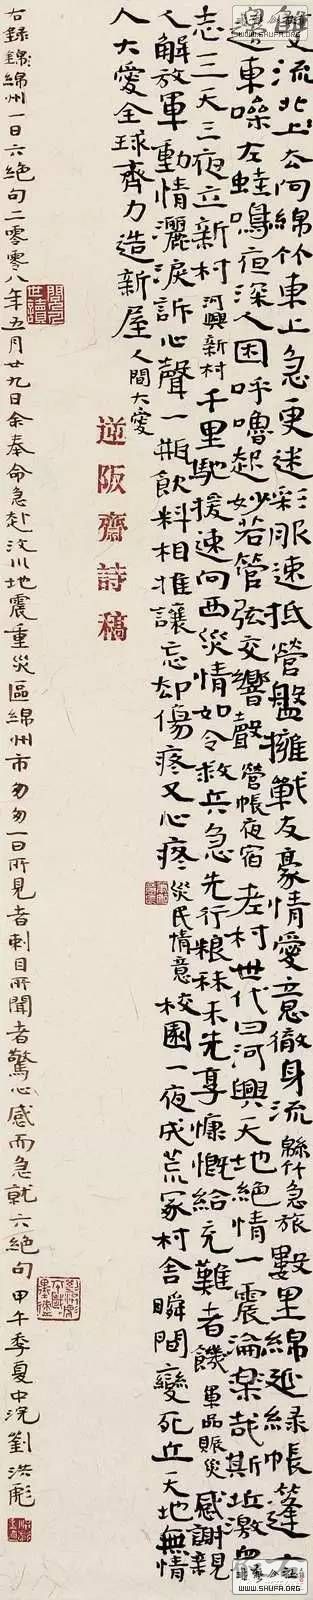 雙流北上太阿綿竹東上急更迷彩服速抵營盤擁戰友豪情愛意徹身流 緜竹急旅 數里綿延綠帳篷
邊東噪左蛙鳴夜深人困呼嚕起妙若管弦交響聲 營帳夜宿 老村世代曰河興天地絕情一震淪樂哉斯丘激
志三天三夜立新村 河興新村 千里馳援速向西災情如令救兵急先行粮秣未先享慷慨給充難者饑 軍品賑災 感謝親
人解放軍動情灑淚訴心聲一瓶飲料相推讓忘却傷疼又心疼 災民情意 校園一夜成荒冢村舍瞬間變死丘天地無情
人大愛全球齊力造新屋 人間大愛
逆阪齋詩稿
右錄錦綿州一日六絕句二零零八年五月廿九日余奉命急赴汶川地震重災區綿州市匆匆一日所見者刺目所聞者驚心感而急就六絕句甲午季夏中浣劉洪彪
書法公社
WWW.SHUFA.ORG